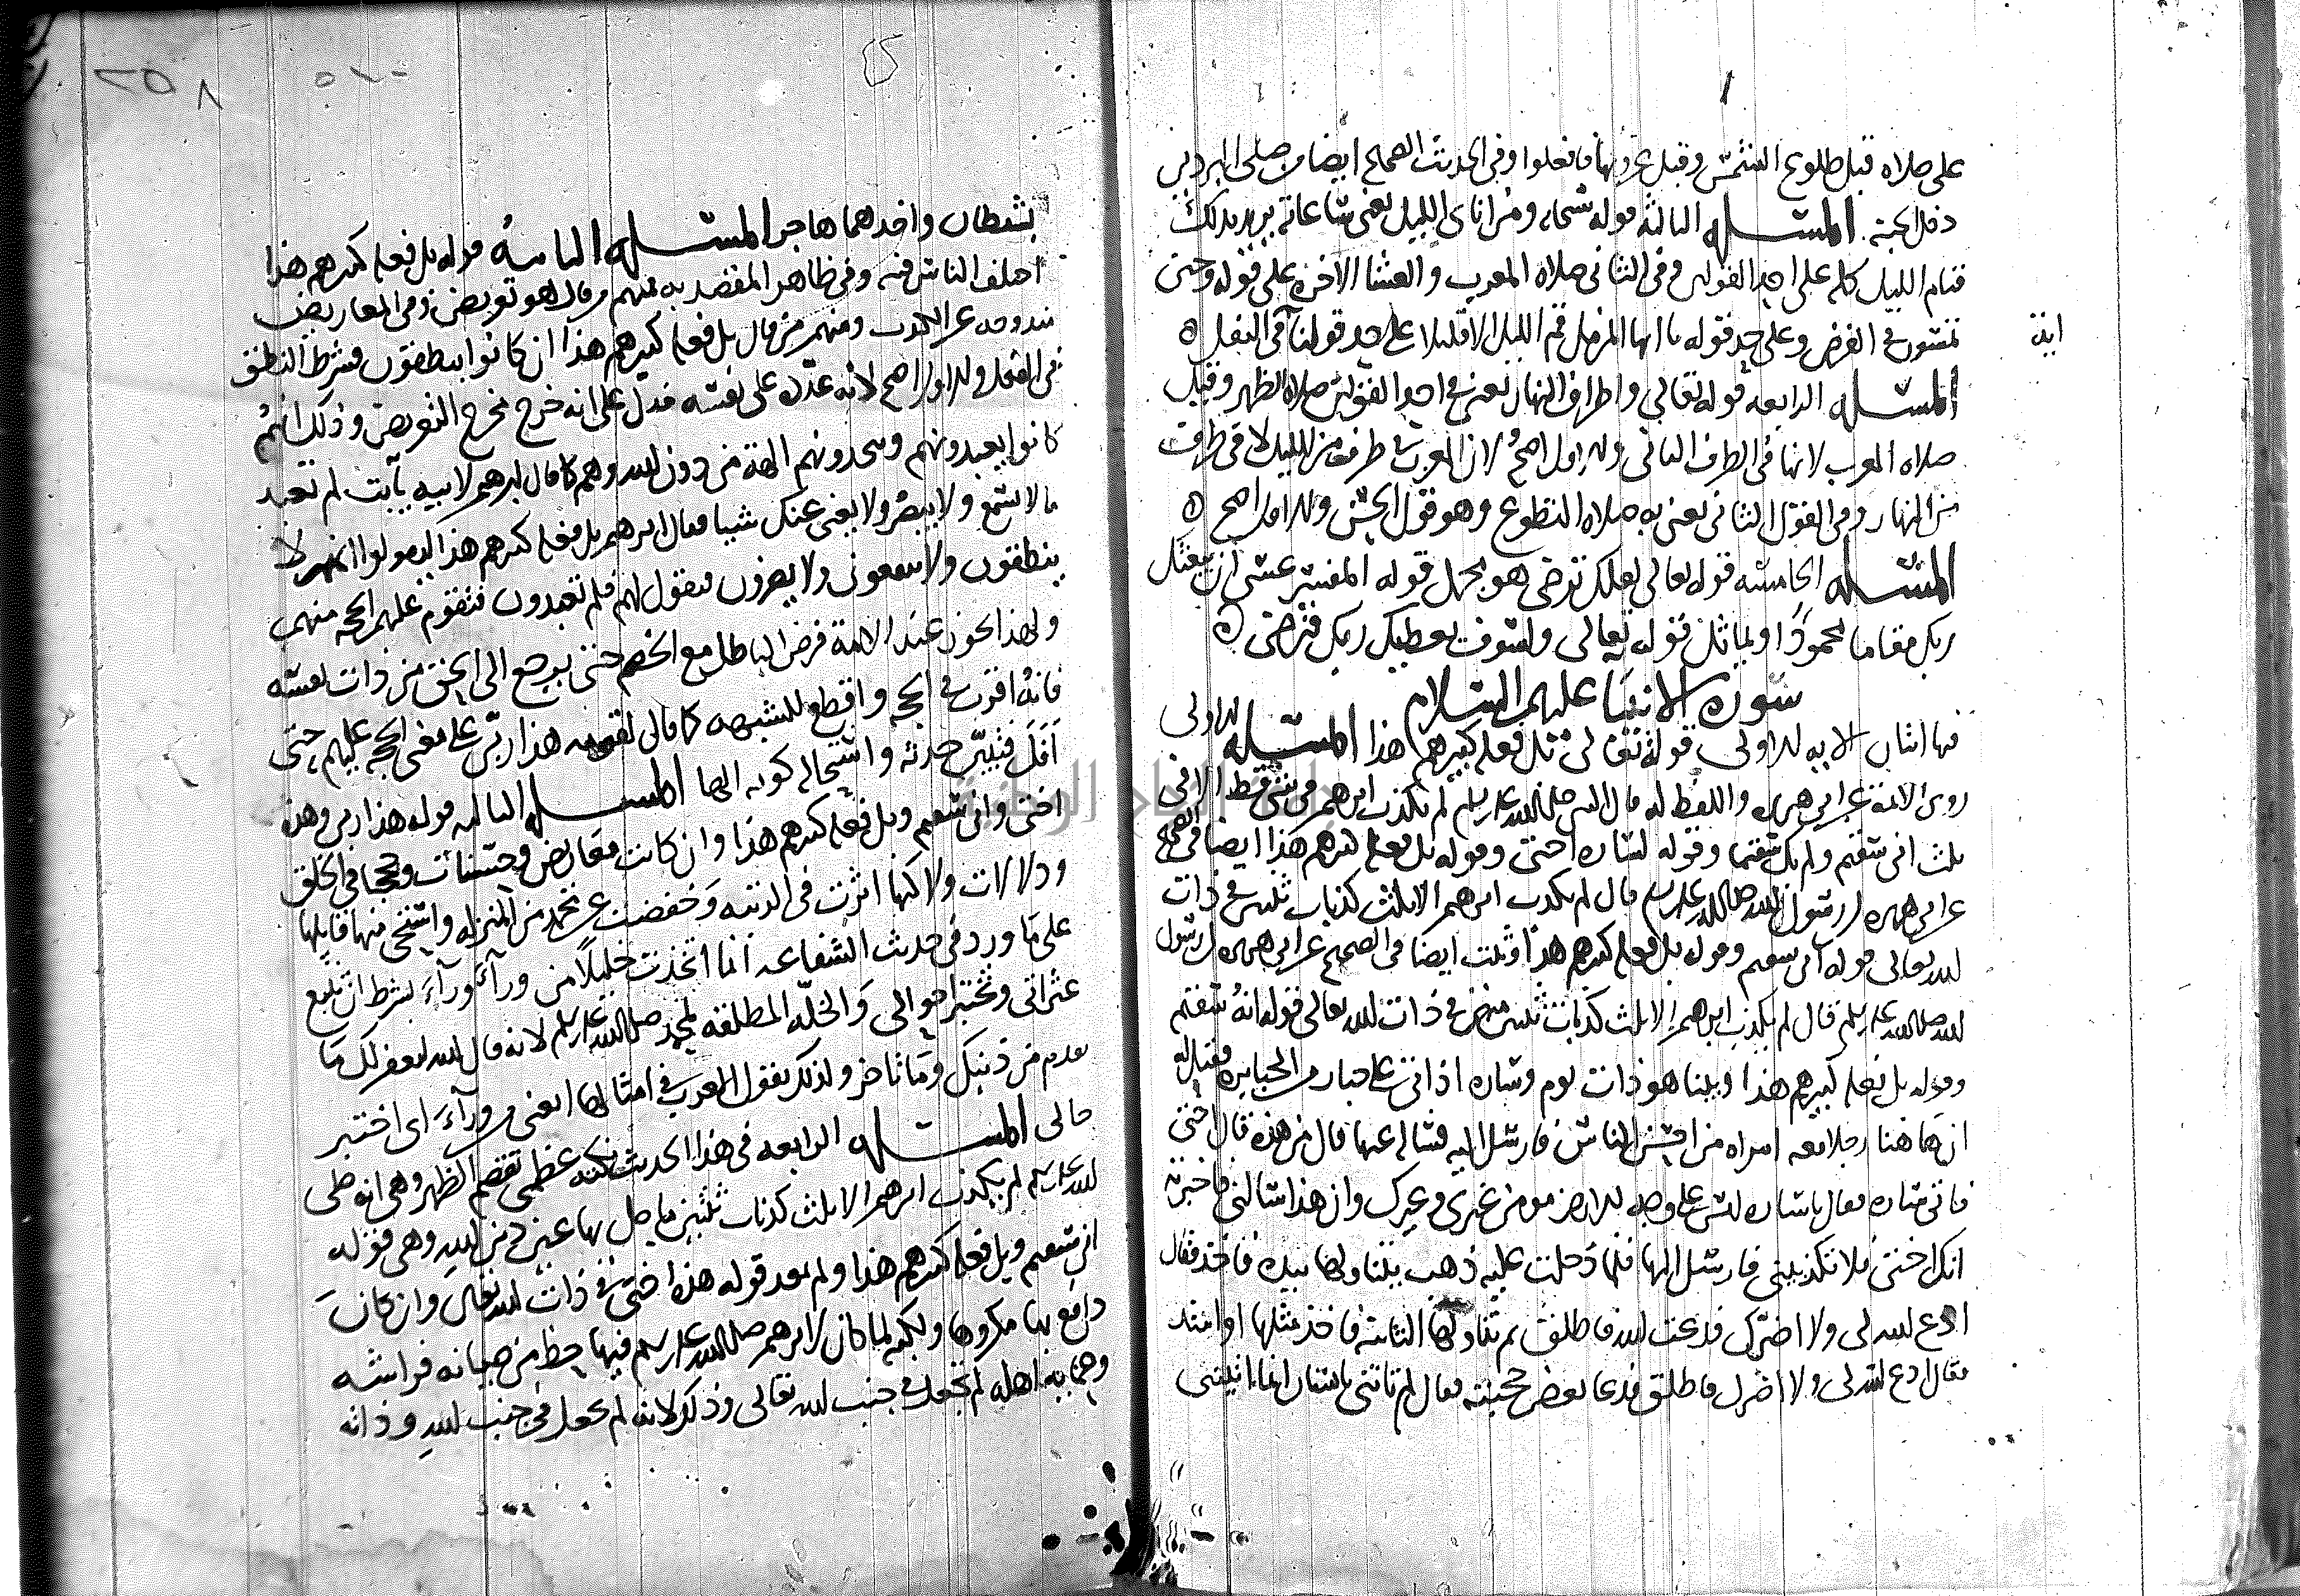 على صلاه قبل طلوع الشمس وقبل غروبها فافعلوا وفي الحديث الصحيح ايضا من صلى البردين
دخل الجنة المسئله الثالثه قوله سبحانه ومن اناى الليل يعنى ساعاته يريد بذلك
قيام الليل كله على احد القولين وفي الثانى صلاه المغرب والعشا الاخره على قوله وحين
تمسون في الفرض وعلى حد قوله يا ايها المزمل قم الليل الا قليلا على حد قولنا في النفل
المسئله الرابعه قوله تعالى واطراف النهار يعنى في احد القولين صلاه الظهر وقيل
صلاه المغرب لانها في الطرف الثانى والاول اصح لان المغرب في طرف من الليل لا في طرف
من النهار وفي القول الثانى يعنى به صلاه التطوع وهو قول الحسن والاول اصح
المسئله الخامسه قوله تعالى لعلك ترضى هو مجمل قوله المفسر عسى ان يبعثك
ربك مقاما محمودا ويماثل قوله تعالى ولسوف يعطيك ربك فترضى
سورة الانبيا عليهم السلام
فيها اثنان الايه الاولى قوله تعالى بل فعله كبيرهم هذا المسئله الاولى
روى الائمة عن ابى هريره واللفظ له قال النبى صلى الله عليه وسلم لم يكذب ابرهيم في شئ قط الا في
ثلث انى سقيم ولم يك سقيما وقوله لساره اختى وقوله بل فعله كبيرهم هذا ايضا في الصحيح
عن ابى هريره ان رسول الله صلى الله عليه وسلم قال لم يكذب ابرهيم الا ثلث كذبات ثنتين في ذات
الله تعالى قوله انى سقيم وقوله بل فعله كبيرهم هذا وثبت ايضا في الصحيح عن ابى هريره ان رسول
الله صلى الله عليه وسلم قال لم يكذب ابرهيم الا ثلث كذبات ثنتين منهن في ذات الله تعالى قوله انى سقيم
وقوله بل فعله كبيرهم هذا وبينا هو ذات يوم وساره اذ اتى على جبار من الجبابره فقيل له
ان ها هنا رجلا معه امراه من احسن الناس فارسل اليه فساله عنها قال من هذه قال اختى
فاتى ساره فقال يا ساره ليس على وجه الارض مومن غيرى وغيرك وان هذا سالنى فاخبرته
انك اختى فلا تكذبينى فارسل اليها فلما دخلت عليه ذهب يتناولها بيده فاخذ فقال
ادع الله لى ولا اضرك فدعت الله فاطلق ثم تناولها الثانية فاخذ مثلها او اشد
فقال ادع الله لى ولا اضرك فاطلق فدعا بعض حجبته فقال لم تاتنى بانسان انما اتيتنى
ايه
بشيطان واخدمها هاجر المسئله الثانيه قوله بل فعله كبيرهم هذا
اختلف الناس فيه وفي ظاهر المقصد به فمنهم من قال هو تعريض وفي المعاريض
مندوحه عن الكذب ومنهم من قال بل فعله كبيرهم هذا ان كانوا ينطقون فشرط النطق
في الفعل والاول اصح لانه عدّه على نفسه فدل على انه خرج مخرج التعريض وذلك انهم
كانوا يعبدونهم ويتخذونهم الهة من دون الله وهم كما قال ابرهيم لابيه يابت لم تعبد
ما لا يسمع ولا يبصر ولا يغنى عنك شيئا فقال ابرهيم بل فعله كبيرهم هذا ليقولوا انهم لا
ينطقون ولا ينفعون ولا يضرون فيقول لهم فلم تعبدون فتقوم عليهم الحجه منهم
ولهذا يجوز عند الائمة فرض الباطل مع الخصم حتى يرجع الى الحق من ذات نفسه
فانه اقرب في الحجه واقطع للشبهه كما قال لقومه هذا ربى على معنى الحجه عليهم حتى
اَفَلَ فتبيّن حدثه واستحاله كونه الها المسئله الثالثه قوله هذا ربى وهذه
اختى وانى سقيم وبل فعله كبيرهم هذا وان كانت معاريض وحسنات وحججا في الخلق
ودلالات ولاكنها اثرت في الرتبه وخفضت عن محمد من المنزله واستحى منها قايلها
على ما ورد في حديث الشفاعه انما اتخذت خليلا من ورآءَ ورآءَ بشرط ان تتبع
عثراتى وتختبر احوالى والخلّه المطلقه لمحمد صلى الله عليه وسلم لانه قال الله ليغفر لك ما
تقدم من ذنبك وما تاخر ولذلك يقول العرب في امثالها ابغنى من ورآءَ اى اختبر
حالى المسئله الرابعه في هذا الحديث نكته عظمى تقصم الظهر وهى انه صلى
الله عليه وسلم لم يكذب ابرهيم الا ثلث كذبات ثنتين ما حل بها عن دين الله وهى قوله
انى سقيم وبل فعله كبيرهم هذا ولم يعد قوله هذه اختى في ذات الله تعالى وان كانَ
دافع بها مكروها ولكنه لما كان لابرهيم صلى الله عليه وسلم فيها حظ من صيانه فراشه
وحمايه اهله لم تجعل في جنب الله تعالى وذلك لانه لم يجعل في جنب الله وذاته